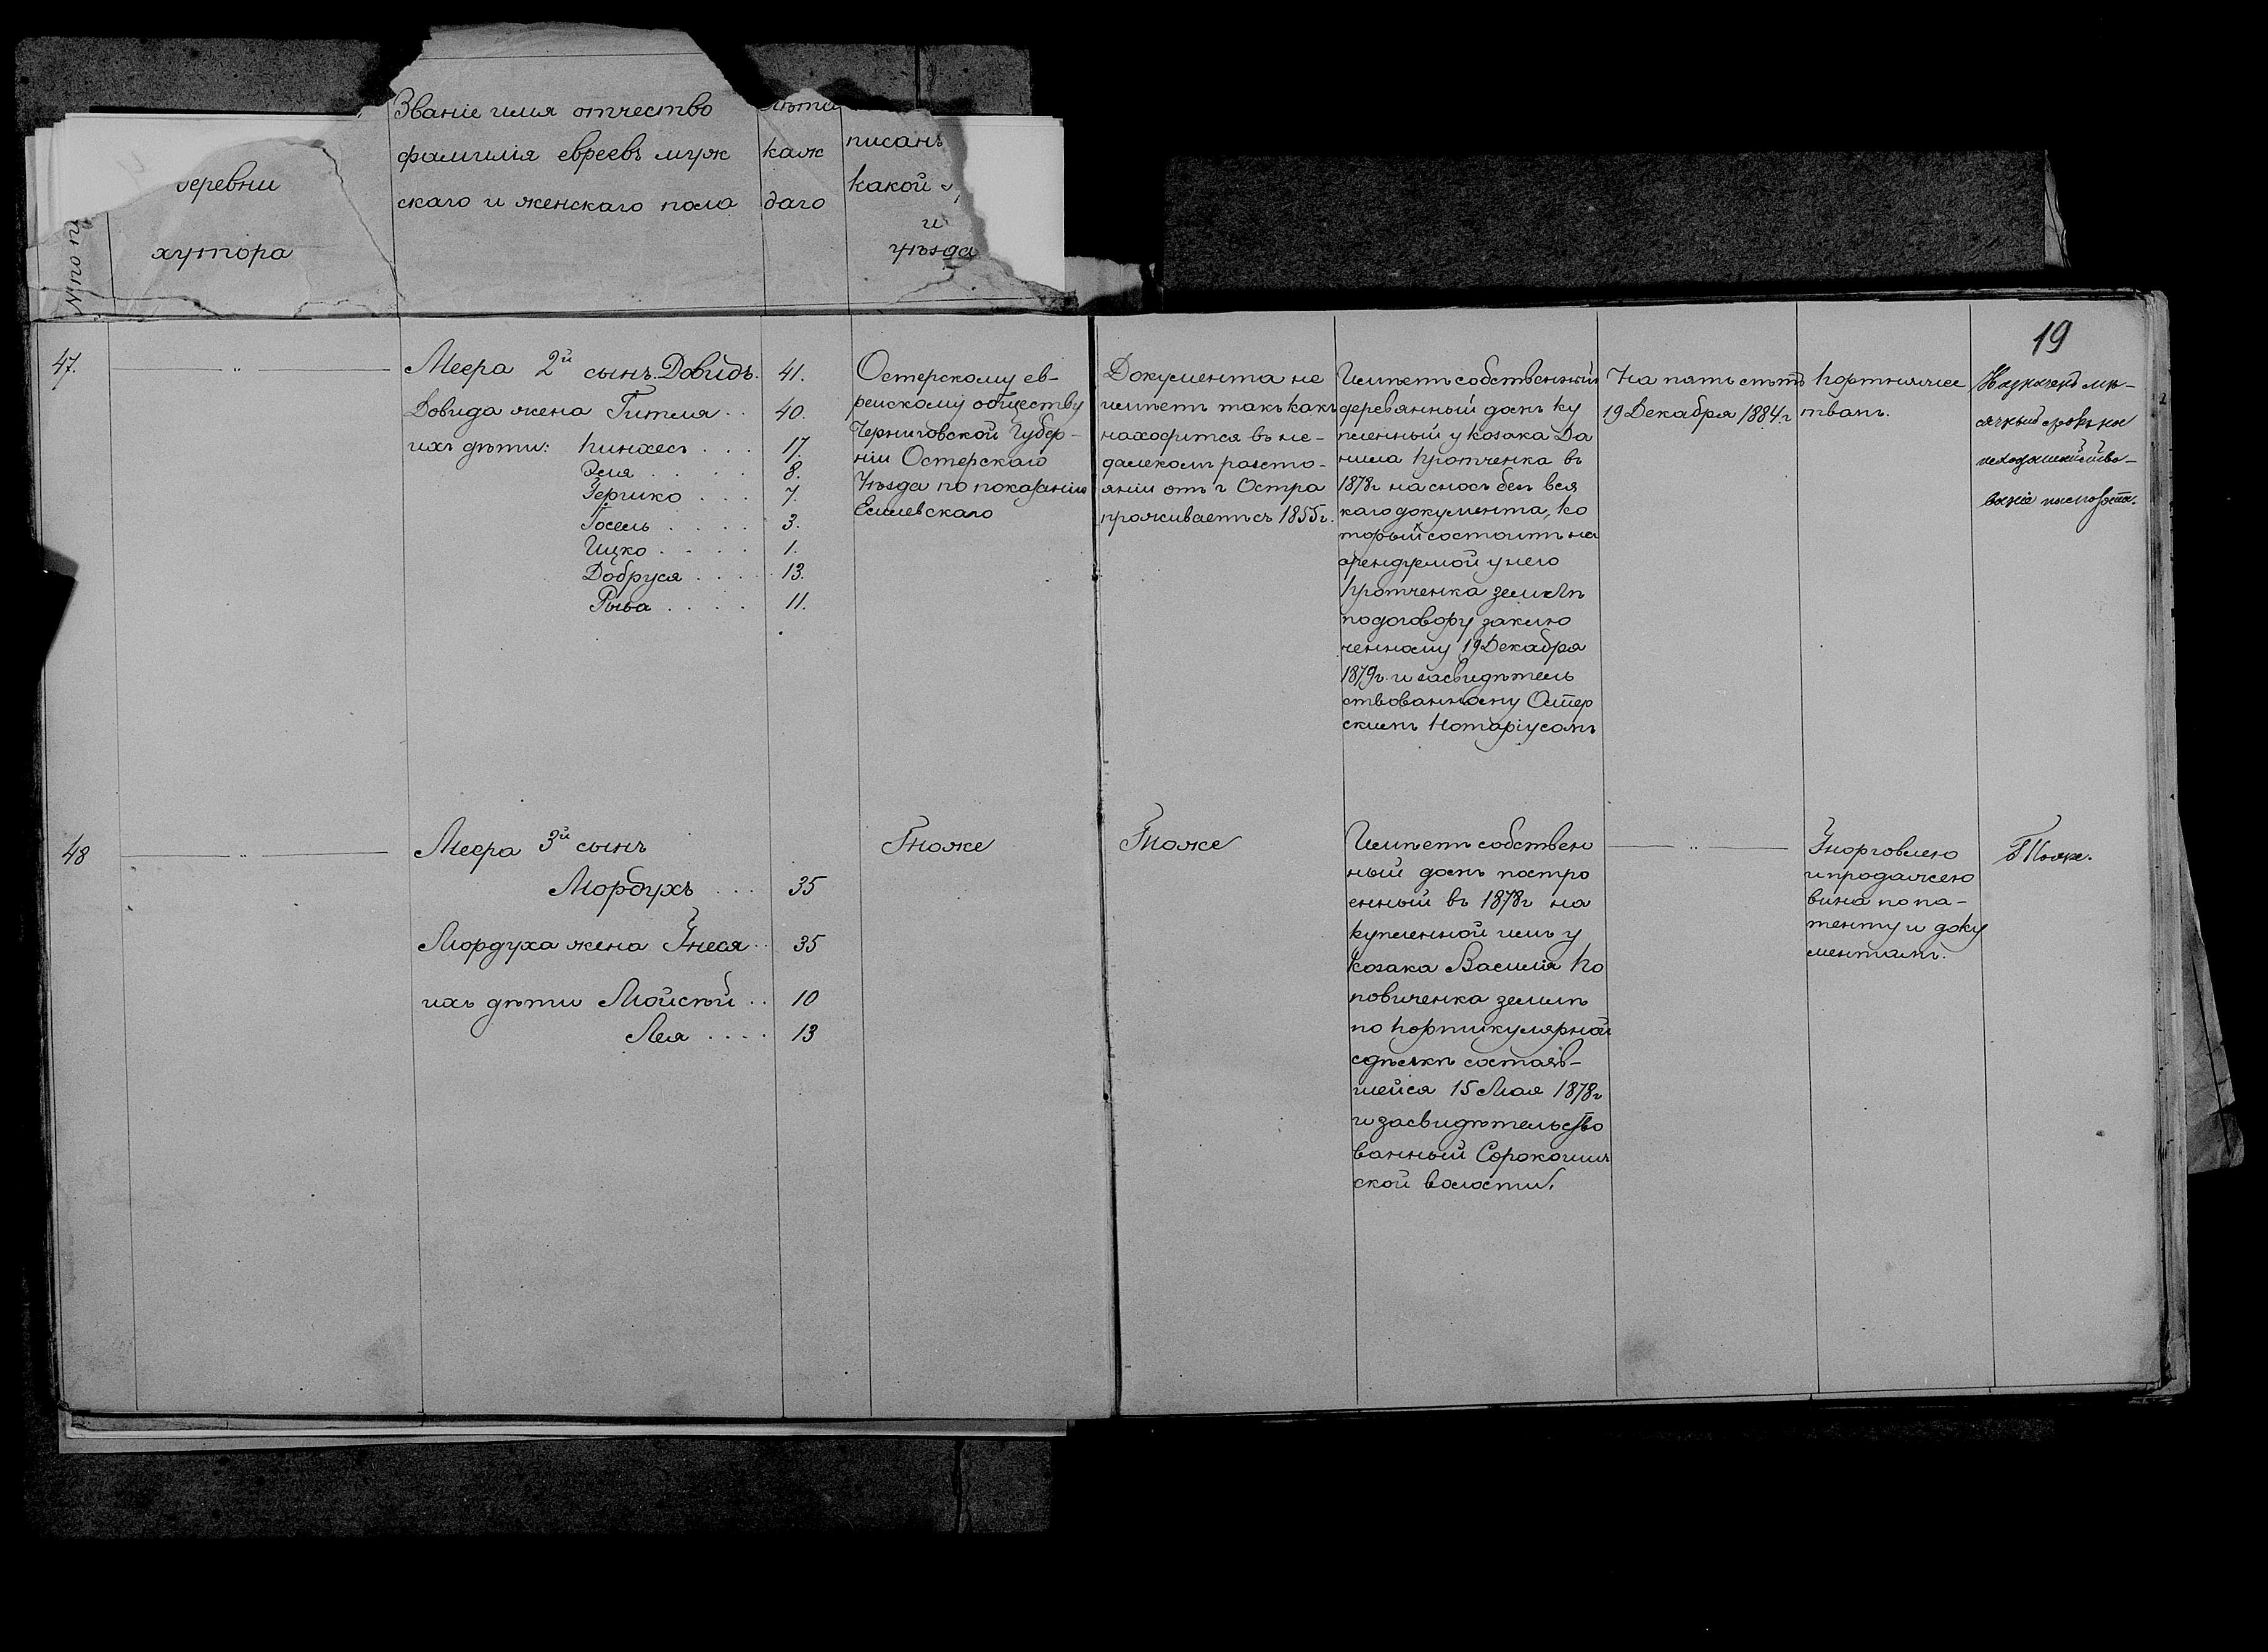 Званіе имя отчество
фамилія евреевъ муж
скаго и женскаго пола
лѣта
каж
даго
писанъ
какой
и
уѣзда
деревни
хутора
№ по п
19
47.
Меера 2й сынъ Довидъ. 41.
Довида жена Гитля . . 40.
ихъ дѣти: Пинхесъ . . . 17.
Эля . . . . 8.
Зершко . . . 7.
Іосель . . . . 3.
Ицко . . . . 1.
Добруся . . . . 13.
Рыва . . . . 11.
Остерскому ев-
рейскому обществу
Черниговской Губер-
ніи Остерскаго
Уѣзда по показанію
Документа не
имѣетъ такъ какъ
находится въ не-
далекомъ разсто-
яніи отъ г Остра
проживаетъ съ 1855г.
Имѣетъ собственный
деревянный домъ ку
пленный у козака Да
нила Кротченка въ
1878г на сносъ безъ вся
каго документа, ко
торый состоитъ на
арендуемой у него
Кротченка землѣ
по договору заклю
ченному 19 Декабря
1879г. и засвидѣтель
ствованному Остер
скимъ Нотаріусомъ
На пять лѣтъ
19 Декабря 1884.г
Портняжес
твомъ.
48
Меера 3й сынъ
Мордухъ . . . 35
Мордуха жена Гнеся . . 35
ихъ дѣти Мойсѣй . . 10
Лея . . . . 13
Тоже
Тоже
Имѣетъ собствен
ный домъ постро
енный въ 1878г на
купленной имъ у
козака Василія По
повиченка землѣ
по Портикулярной
сдѣлкѣ состояв-
шейся 15 Мая 1878г
и засвидѣтельство
ванный Сорокошич
ской волости.
Торговлею
и продажею
вина по па-
тенту и доку
ментамъ.
Тоже.